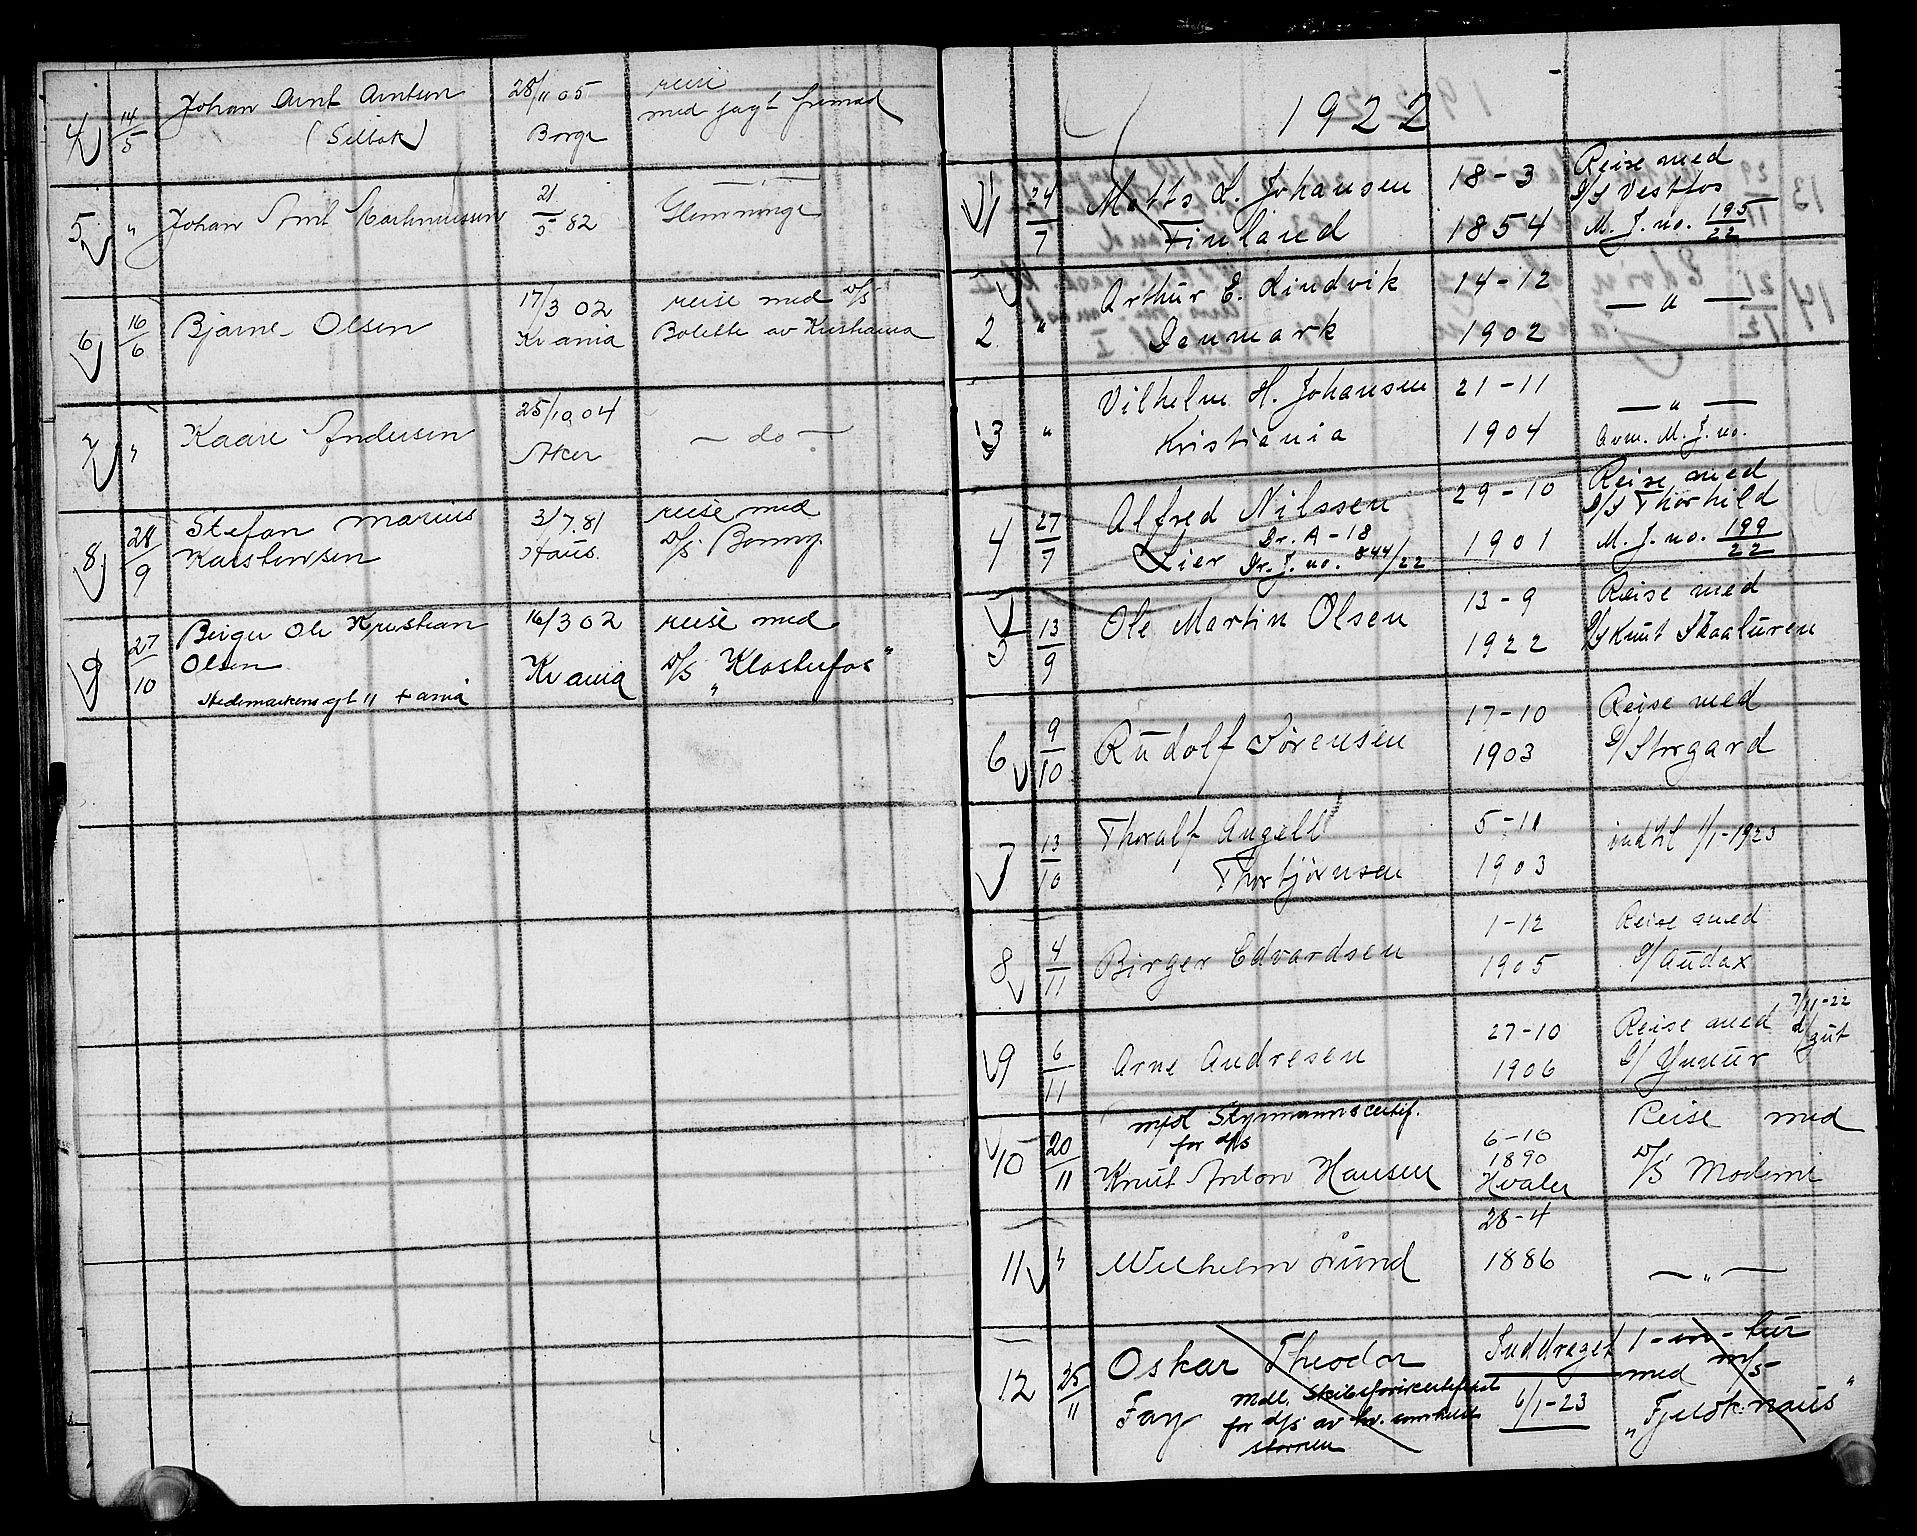 4 14/5 Johan Arnt Arntsen 28/11 05 reise
(Selbak) Borge med jagt fremad
5 " Johan Emil 21/5 82 Glemminge
6 16/6 Bjarne Olsen 17/3 02 reise med D/S
Kr ania Bolette av Kristiania
7 " Kaare Andersen 25/10 04 — do —
Aker
8 28/9 Stefan Marius 3/7.81 reise med
Karstensen D/S Bonny.
9 27/10 Birger Ole Kristian 16/3 02 reise med
Olsen Kr ania D/S "Klosterfos"
Hedemarkens gt 11 Kr ania
1922
1 24/7 Matts L. Johansen 18-3 Reise med
Finland 1854 D/S Vestfos
M. J. no. 195/22
2 " Arthur E. Lindvik 14-12 — " —
Danmark 1902
3 " Vilhelm H. Johansen 21-11 — " —
Kristiania 1904 M. J. no.
4 27/7 Alfred Nilssen 29-10 Reise med
Dr. A-18 D/S Thorhild
Lier Dr. J. no. 844/22 1901 M. J. no. 199/22
5 13/9 Ole Martin Olsen 13-9 Reise med
1922 D/S Knut Skaaluren
6 9/10 Rudolf Sørensen 17-10 Reise med
1903 D/ Storgard
7 13/10 Thoralf Angell 5-11 indtil 1/1-1923
Thorbjørnsen 1903
8 4/11 Birger Edvardsen 1-12 Reise med
1905 D/ Audax
9 6/11 Arne Andresen 27-10 Reise med 7/11-22
1906 D/ d/ gut
10 20/11 mdl Styrmannscertif.
for d/s 6-10 Reise med
Knut Anton Hansen 1890 D/S Moderni
Hvaler
11 " Wilhelm Lund 28-4
1886 — " —
12 25/11 Oskar Theodor Inddraget 1-en-tur
Fay mdl. Skibsførercertifikat 6/1-23 med m/s
for d/s av "Fjeldknaus"